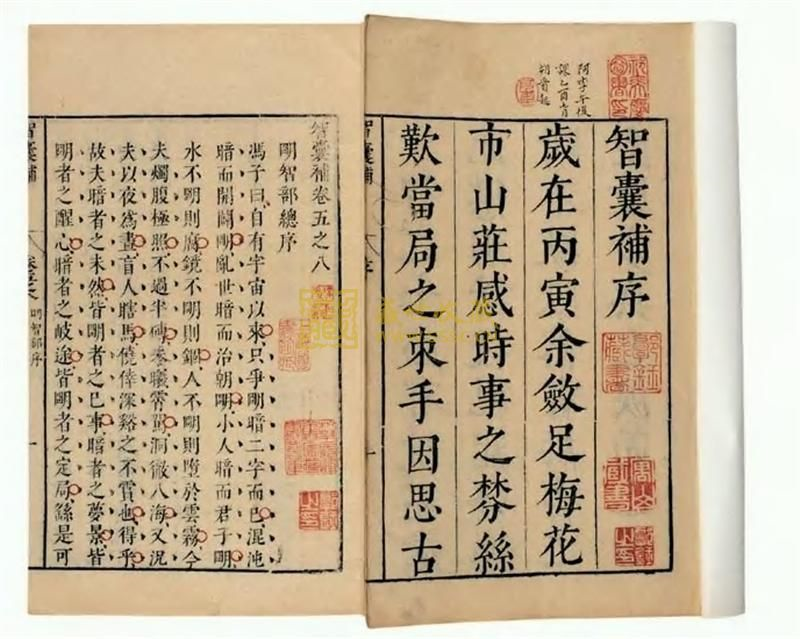 智囊補序
歲在丙寅余斂足梅花
市山莊感時事之棼絲
歎當局之束手因思古
智囊補
序
一
智囊補卷五之八
明智部總序
馮子曰自有宇宙以來只爭明暗二字而已混沌
暗而開闢明亂世暗而治朝明小人暗而君子明
水不明則腐鏡不明則錮人不明則墮於雲霧今
夫燭腹極照不過半磚朱曦霄駕洞徹八海又況
夫以夜為晝盲人瞎馬僥倖深谿之不霣也得乎
故夫暗者之未然皆明者之已事暗者之夢景皆
明者之醒心暗者之岐途皆明者之定局繇是可
智囊補
明智部序
一